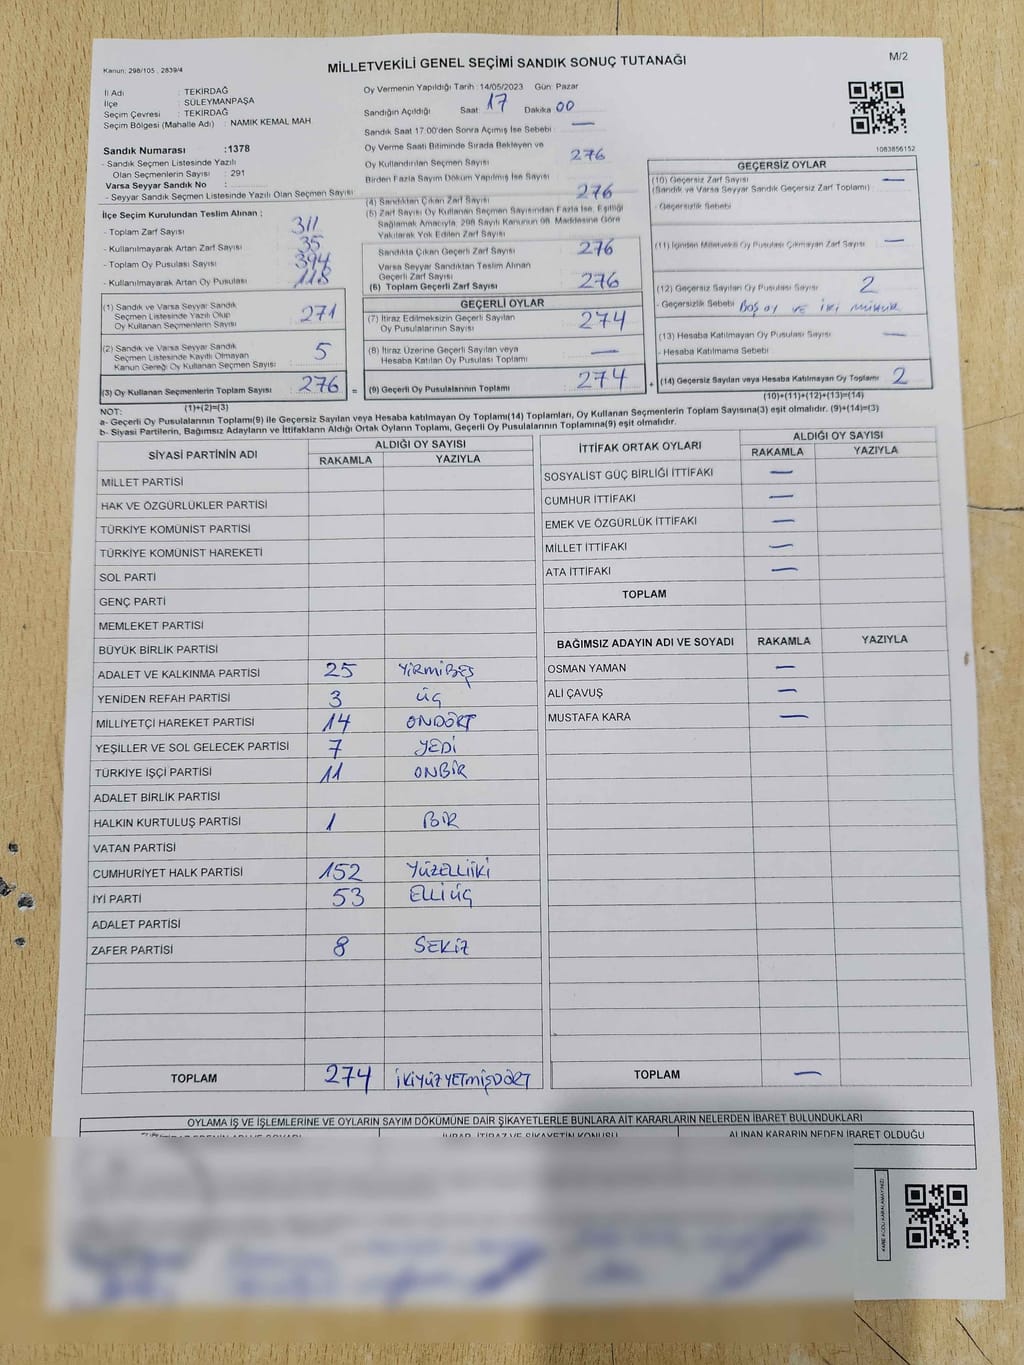 Kanun: 298/105 , 2839/4
MİLLETVEKİLİ GENEL SEÇİMİ SANDIK SONUÇ TUTANAĞI
M/2
İl Adı : TEKİRDAĞ
İlçe : SÜLEYMANPAŞA
Seçim Çevresi : TEKİRDAĞ
Seçim Bölgesi (Mahalle Adı) : NAMIK KEMAL MAH
Sandık Numarası :1378
- Sandık Seçmen Listesinde Yazılı
Olan Seçmenlerin Sayısı : 291
Varsa Seyyar Sandık No :
- Seyyar Sandık Seçmen Listesinde Yazılı Olan Seçmen Sayısı:
İlçe Seçim Kurulundan Teslim Alınan ;
- Toplam Zarf Sayısı : 311
- Kullanılmayarak Artan Zarf Sayısı : 35
- Toplam Oy Pusulası Sayısı : 394
- Kullanılmayarak Artan Oy Pusulası : 118
(1) Sandık ve Varsa Seyyar Sandık
Seçmen Listesinde Yazılı Olup
Oy Kullanan Seçmenlerin Sayısı : 271
(2) Sandık ve Varsa Seyyar Sandık
Seçmen Listesinde Kayıtlı Olmayan
Kanun Gereği Oy Kullanan Seçmen Sayısı : 5
(3) Oy Kullanan Seçmenlerin Toplam Sayısı : 276 =
(1)+(2)=(3)
Oy Vermenin Yapıldığı Tarih :14/05/2023 Gün: Pazar
Sandığın Açıldığı Saat: 17 Dakika 00
Sandık Saat 17.00'den Sonra Açılmış İse Sebebi : —
Oy Verme Saati Bitiminde Sırada Bekleyen ve
Oy Kullandırılan Seçmen Sayısı : 276
Birden Fazla Sayım Döküm Yapılmış İse Sayısı :
(4) Sandıktan Çıkan Zarf Sayısı : 276
(5) Zarf Sayısı Oy Kullanan Seçmen Sayısından Fazla İse, Eşitliği
Sağlamak Amacıyla, 298 Sayılı Kanunun 98. Maddesine Göre
Yakılarak Yok Edilen Zarf Sayısı :
Sandıkta Çıkan Geçerli Zarf Sayısı : 276
Varsa Seyyar Sandıktan Teslim Alınan
Geçerli Zarf Sayısı :
(6) Toplam Geçerli Zarf Sayısı : 276
GEÇERLİ OYLAR
(7) İtiraz Edilmeksizin Geçerli Sayılan
Oy Pusulalarının Sayısı : 274
(8) İtiraz Üzerine Geçerli Sayılan veya
Hesaba Katılan Oy Pusulası Toplamı : —
(9) Geçerli Oy Pusulalarının Toplamı : 274 +
1083856152
GEÇERSİZ OYLAR
(10) Geçersiz Zarf Sayısı : —
(Sandık ve Varsa Seyyar Sandık Geçersiz Zarf Toplamı)
- Geçersizlik Sebebi :
(11) İçinden Milletvekili Oy Pusulası Çıkmayan Zarf Sayısı : —
(12) Geçersiz Sayılan Oy Pusulası Sayısı : 2
- Geçersizlik Sebebi : BOŞ OY VE İKİ MÜHÜR
(13) Hesaba Katılmayan Oy Pusulası Sayısı : —
- Hesaba Katılmama Sebebi :
(14) Geçersiz Sayılan veya Hesaba Katılmayan Oy Toplamı : 2
(10)+(11)+(12)+(13)=(14)
NOT:
a- Geçerli Oy Pusulalarının Toplamı(9) ile Geçersiz Sayılan veya Hesaba katılmayan Oy Toplamı(14) Toplamları, Oy Kullanan Seçmenlerin Toplam Sayısına(3) eşit olmalıdır. (9)+(14)=(3)
b- Siyasi Partilerin, Bağımsız Adayların ve İttifakların Aldığı Ortak Oyların Toplamı, Geçerli Oy Pusulalarının Toplamına(9) eşit olmalıdır.
SİYASİ PARTİNİN ADI ALDIĞI OY SAYISI
RAKAMLA YAZIYLA
MİLLET PARTİSİ
HAK VE ÖZGÜRLÜKLER PARTİSİ
TÜRKİYE KOMÜNİST PARTİSİ
TÜRKİYE KOMÜNİST HAREKETİ
SOL PARTİ
GENÇ PARTİ
MEMLEKET PARTİSİ
BÜYÜK BİRLİK PARTİSİ
ADALET VE KALKINMA PARTİSİ 25 YİRMİBEŞ
YENİDEN REFAH PARTİSİ 3 ÜÇ
MİLLİYETÇİ HAREKET PARTİSİ 14 ONDÖRT
YEŞİLLER VE SOL GELECEK PARTİSİ 7 YEDİ
TÜRKİYE İŞÇİ PARTİSİ 11 ONBİR
ADALET BİRLİK PARTİSİ
HALKIN KURTULUŞ PARTİSİ 1 BİR
VATAN PARTİSİ
CUMHURİYET HALK PARTİSİ 152 YÜZELLİİKİ
İYİ PARTİ 53 ELLİÜÇ
ADALET PARTİSİ
ZAFER PARTİSİ 8 SEKİZ
TOPLAM 274 İKİYÜZYETMİŞDÖRT
İTTİFAK ORTAK OYLARI ALDIĞI OY SAYISI
RAKAMLA YAZIYLA
SOSYALİST GÜÇ BİRLİĞİ İTTİFAKI —
CUMHUR İTTİFAKI —
EMEK VE ÖZGÜRLÜK İTTİFAKI —
MİLLET İTTİFAKI —
ATA İTTİFAKI —
TOPLAM
BAĞIMSIZ ADAYIN ADI VE SOYADI RAKAMLA YAZIYLA
OSMAN YAMAN —
ALİ ÇAVUŞ —
MUSTAFA KARA —
TOPLAM —
OYLAMA İŞ VE İŞLEMLERİNE VE OYLARIN SAYIM DÖKÜMÜNE DAİR ŞİKAYETLERLE BUNLARA AİT KARARLARIN NELERDEN İBARET BULUNDUKLARI
İHBAR, İTİRAZ VE ŞİKAYETİN KONUSU ALINAN KARARIN NEDEN İBARET OLDUĞU
KARE KODU KARALAMAYINIZ!